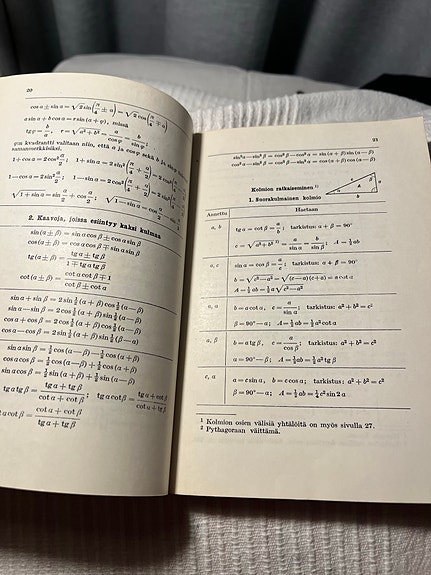 20
cos a ± sin a = √2 sin(π/4 ± a) = √2 cos(π/4 ∓ a)
a sin a + b cos a = r sin (a + φ), missä
tg φ = b/a, r = √a² + b² = a/cos φ = b/sin φ;
kvadrantti valitaan niin, että a ja cos φ sekä b ja sin φ
samanmerkkisiksi.
1 + cos a = 2 cos² a/2; 1 + sin a = 2 sin² (π/4 + a/2)
1 — cos a = 2 sin² a/2; 1 — sin a = 2 sin² (π/4 — a/2)
√1 + sin a = sin a/2 + cos a/2; √1 — sin a = cos a/2
2. Kaavoja, joissa esiintyy kaksi kulmaa
sin (α ± β) = sin α cos β ± cos α sin β
cos (α ± β) = cos α cos β ∓ sin α sin β
tg (α ± β) = tg α ± tg β / 1 ∓ tg α tg β
cot (α ± β) = cot α cot β ∓ 1 / cot β ± cot α
sin α + sin β = 2 sin ½ (α + β) cos ½ (α — β)
sin α — sin β = 2 cos ½ (α + β) sin ½ (α — β)
cos α + cos β = 2 cos ½ (α + β) cos ½ (α — β)
cos α — cos β = 2 sin ½ (α + β) sin ½ (β — α)
sin α sin β = ½ cos (α — β) — ½ cos (α + β)
cos α cos β = ½ cos (α — β) + ½ cos (α + β)
sin α cos β = ½ sin (α + β) + ½ sin (α — β)
tg α tg β = tg α + tg β / cot α + cot β; tg α cot β = tg α + cot β / cot α + tg β
cot α cot β = cot α + cot β / tg α + tg β
21
sin² α — sin² β = cos² β — cos² α = sin (α + β) sin (α — β)
cos² α — sin² β = cos² β — sin² α = cos (α + β) cos (α — β)
Kolmion ratkaiseminen ¹)
1. Suorakulmainen kolmio
c β a
α A
b
Annettu Haetaan
a, b tg α = cot β = a/b; tarkistus: α + β = 90°
c = √a² + b² ²) = a/sin α = b/sin β; A = ½ ab
a, c sin α = cos β = a/c; tarkistus: α + β = 90°
b = √c² — a² = √(c — a) (c + a) = a cot α
A = ½ ab = ½ a √c² — a²
a, α b = a cot α, c = a/sin α; tarkistus: a² + b² = c²
β = 90° — α; A = ½ ab = ½ a² cot α
a, β b = a tg β, c = a/cos β; tarkistus: a² + b² = c²
α = 90° — β; A = ½ ab = ½ a² tg β
c, α a = c sin α, b = c cos α; tarkistus: a² + b² = c²
β = 90° — α, A = ½ ab = ¼ c² sin 2 α
¹ Kolmion osien välisiä yhtälöitä on myös sivulla 27.
² Pythagoraan väittämä.